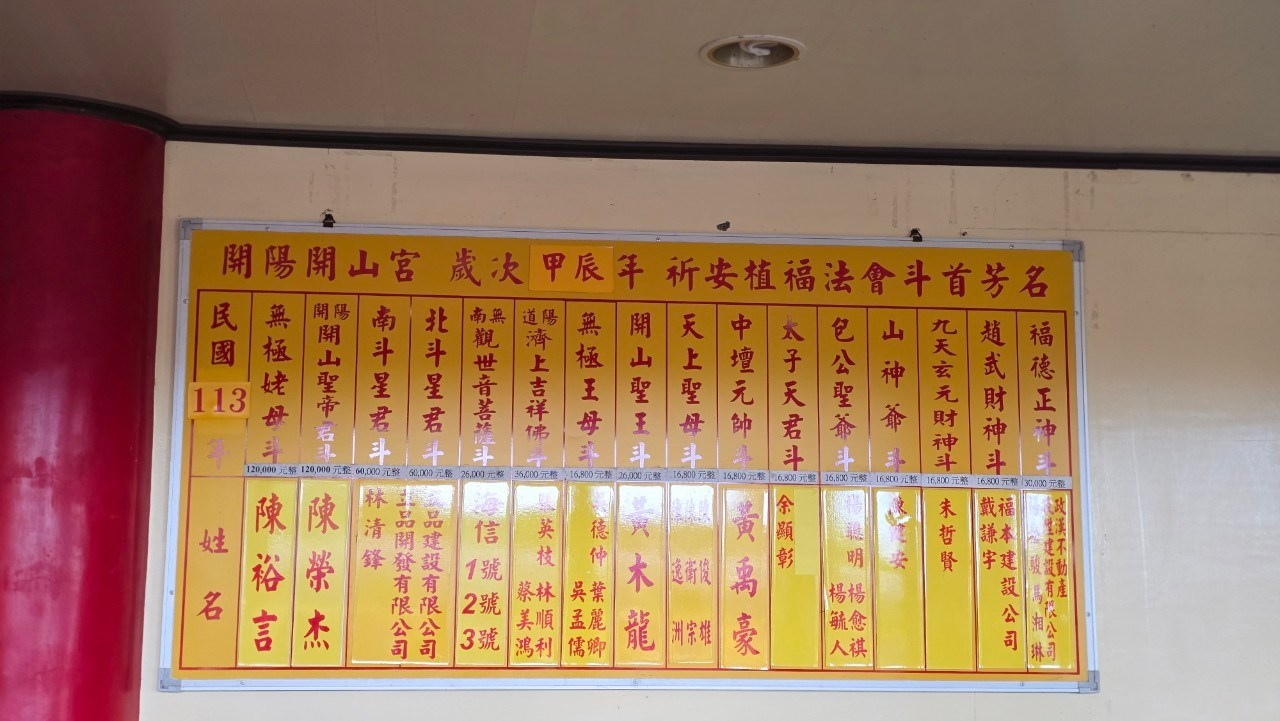 開陽開山宮 歲次甲辰年 祈安植福法會斗首芳名
民國113年
姓名
無極姥母斗
120,000元整
陳裕言
開陽開山聖帝君斗
120,000元整
陳榮杰
南斗星君斗
60,000元整
林清鋒
品開發有限公司
北斗星君斗
60,000元整
品建設有限公司
南無觀世音菩薩斗
26,000元整
海信1號2號3號
道陽濟上吉祥佛斗
36,000元整
英枝
林順利
蔡美鴻
無極王母斗
16,800元整
德仲
葉麗卿
吳孟儒
開山聖王斗
26,000元整
黃木龍
天上聖母斗
16,800元整
俊雄
衛宗
逸洲
中壇元帥斗
16,800元整
黃禹豪
太子天君斗
16,800元整
余顯彰
包公聖爺斗
16,800元整
楊聰明
楊愈祺
楊毓人
山神爺斗
16,800元整
安
九天玄元財神斗
16,800元整
朱哲賢
趙武財神斗
16,800元整
福本建設公司
戴謙宇
福德正神斗
30,000元整
政漢不動產
建設有限公司
駿
馮湘琳